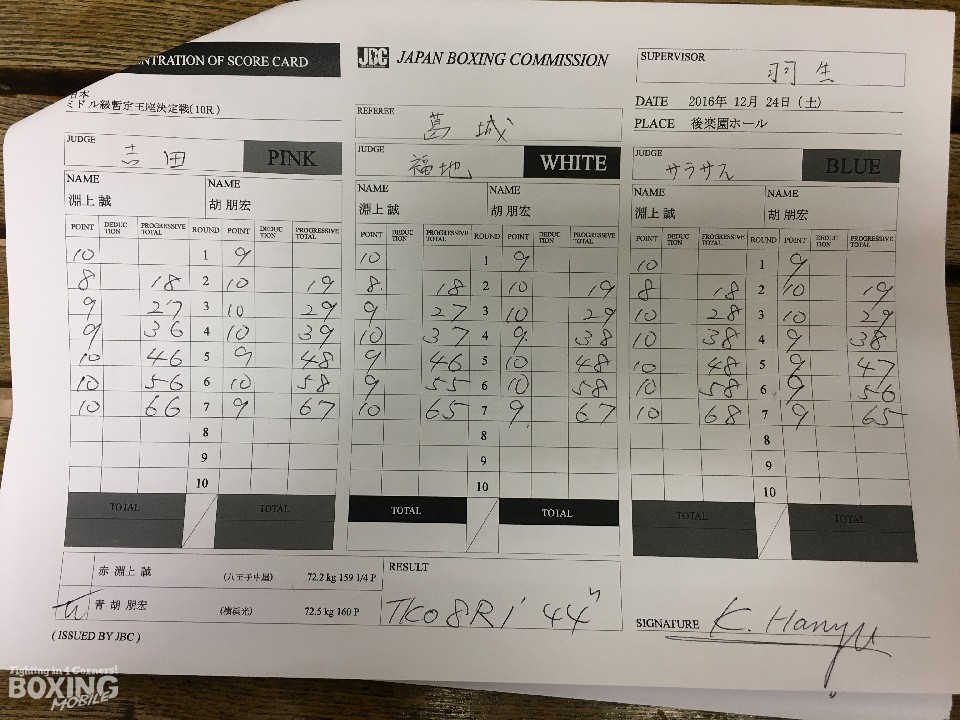 ENTRATION OF SCORE CARD
JBC JAPAN BOXING COMMISSION
SUPERVISOR 羽生
日本
ミドル級暫定王座決定戦(10R)
DATE 2016年 12月 24日 (土)
PLACE 後楽園ホール
REFEREE 葛城
JUDGE 吉田 PINK
JUDGE 福地 WHITE
JUDGE サラサス BLUE
NAME NAME NAME NAME NAME NAME
淵上 誠 胡 朋宏 淵上 誠 胡 朋宏 淵上 誠 胡 朋宏
POINT DEDUCTION PROGRESSIVE TOTAL ROUND POINT DEDUCTION PROGRESSIVE TOTAL POINT DEDUCTION PROGRESSIVE TOTAL ROUND POINT DEDUCTION PROGRESSIVE TOTAL POINT DEDUCTION PROGRESSIVE TOTAL ROUND POINT DEDUCTION PROGRESSIVE TOTAL
10 1 9 10 1 9 10 1 9
8 18 2 10 19 8 18 2 10 19 8 18 2 10 19
9 27 3 10 29 9 27 3 10 29 10 28 3 10 29
9 36 4 10 39 10 37 4 9 38 10 38 4 9 38
10 46 5 9 48 9 46 5 10 48 10 48 5 9 47
10 56 6 10 58 9 55 6 10 58 10 58 6 9 56
10 66 7 9 67 10 65 7 9 67 10 68 7 9 65
8 8 8
9 9 9
10 10 10
TOTAL TOTAL TOTAL TOTAL TOTAL TOTAL
赤 淵上 誠 (八王子中屋) 72.2 kg 159 1/4 P
青 胡 朋宏 (横浜光) 72.5 kg 160 P
RESULT
TKO 8R 1' 44"
SIGNATURE K. Hanyu
( ISSUED BY JBC )
Fighting in 4 Corners!
BOXING
MOBILE